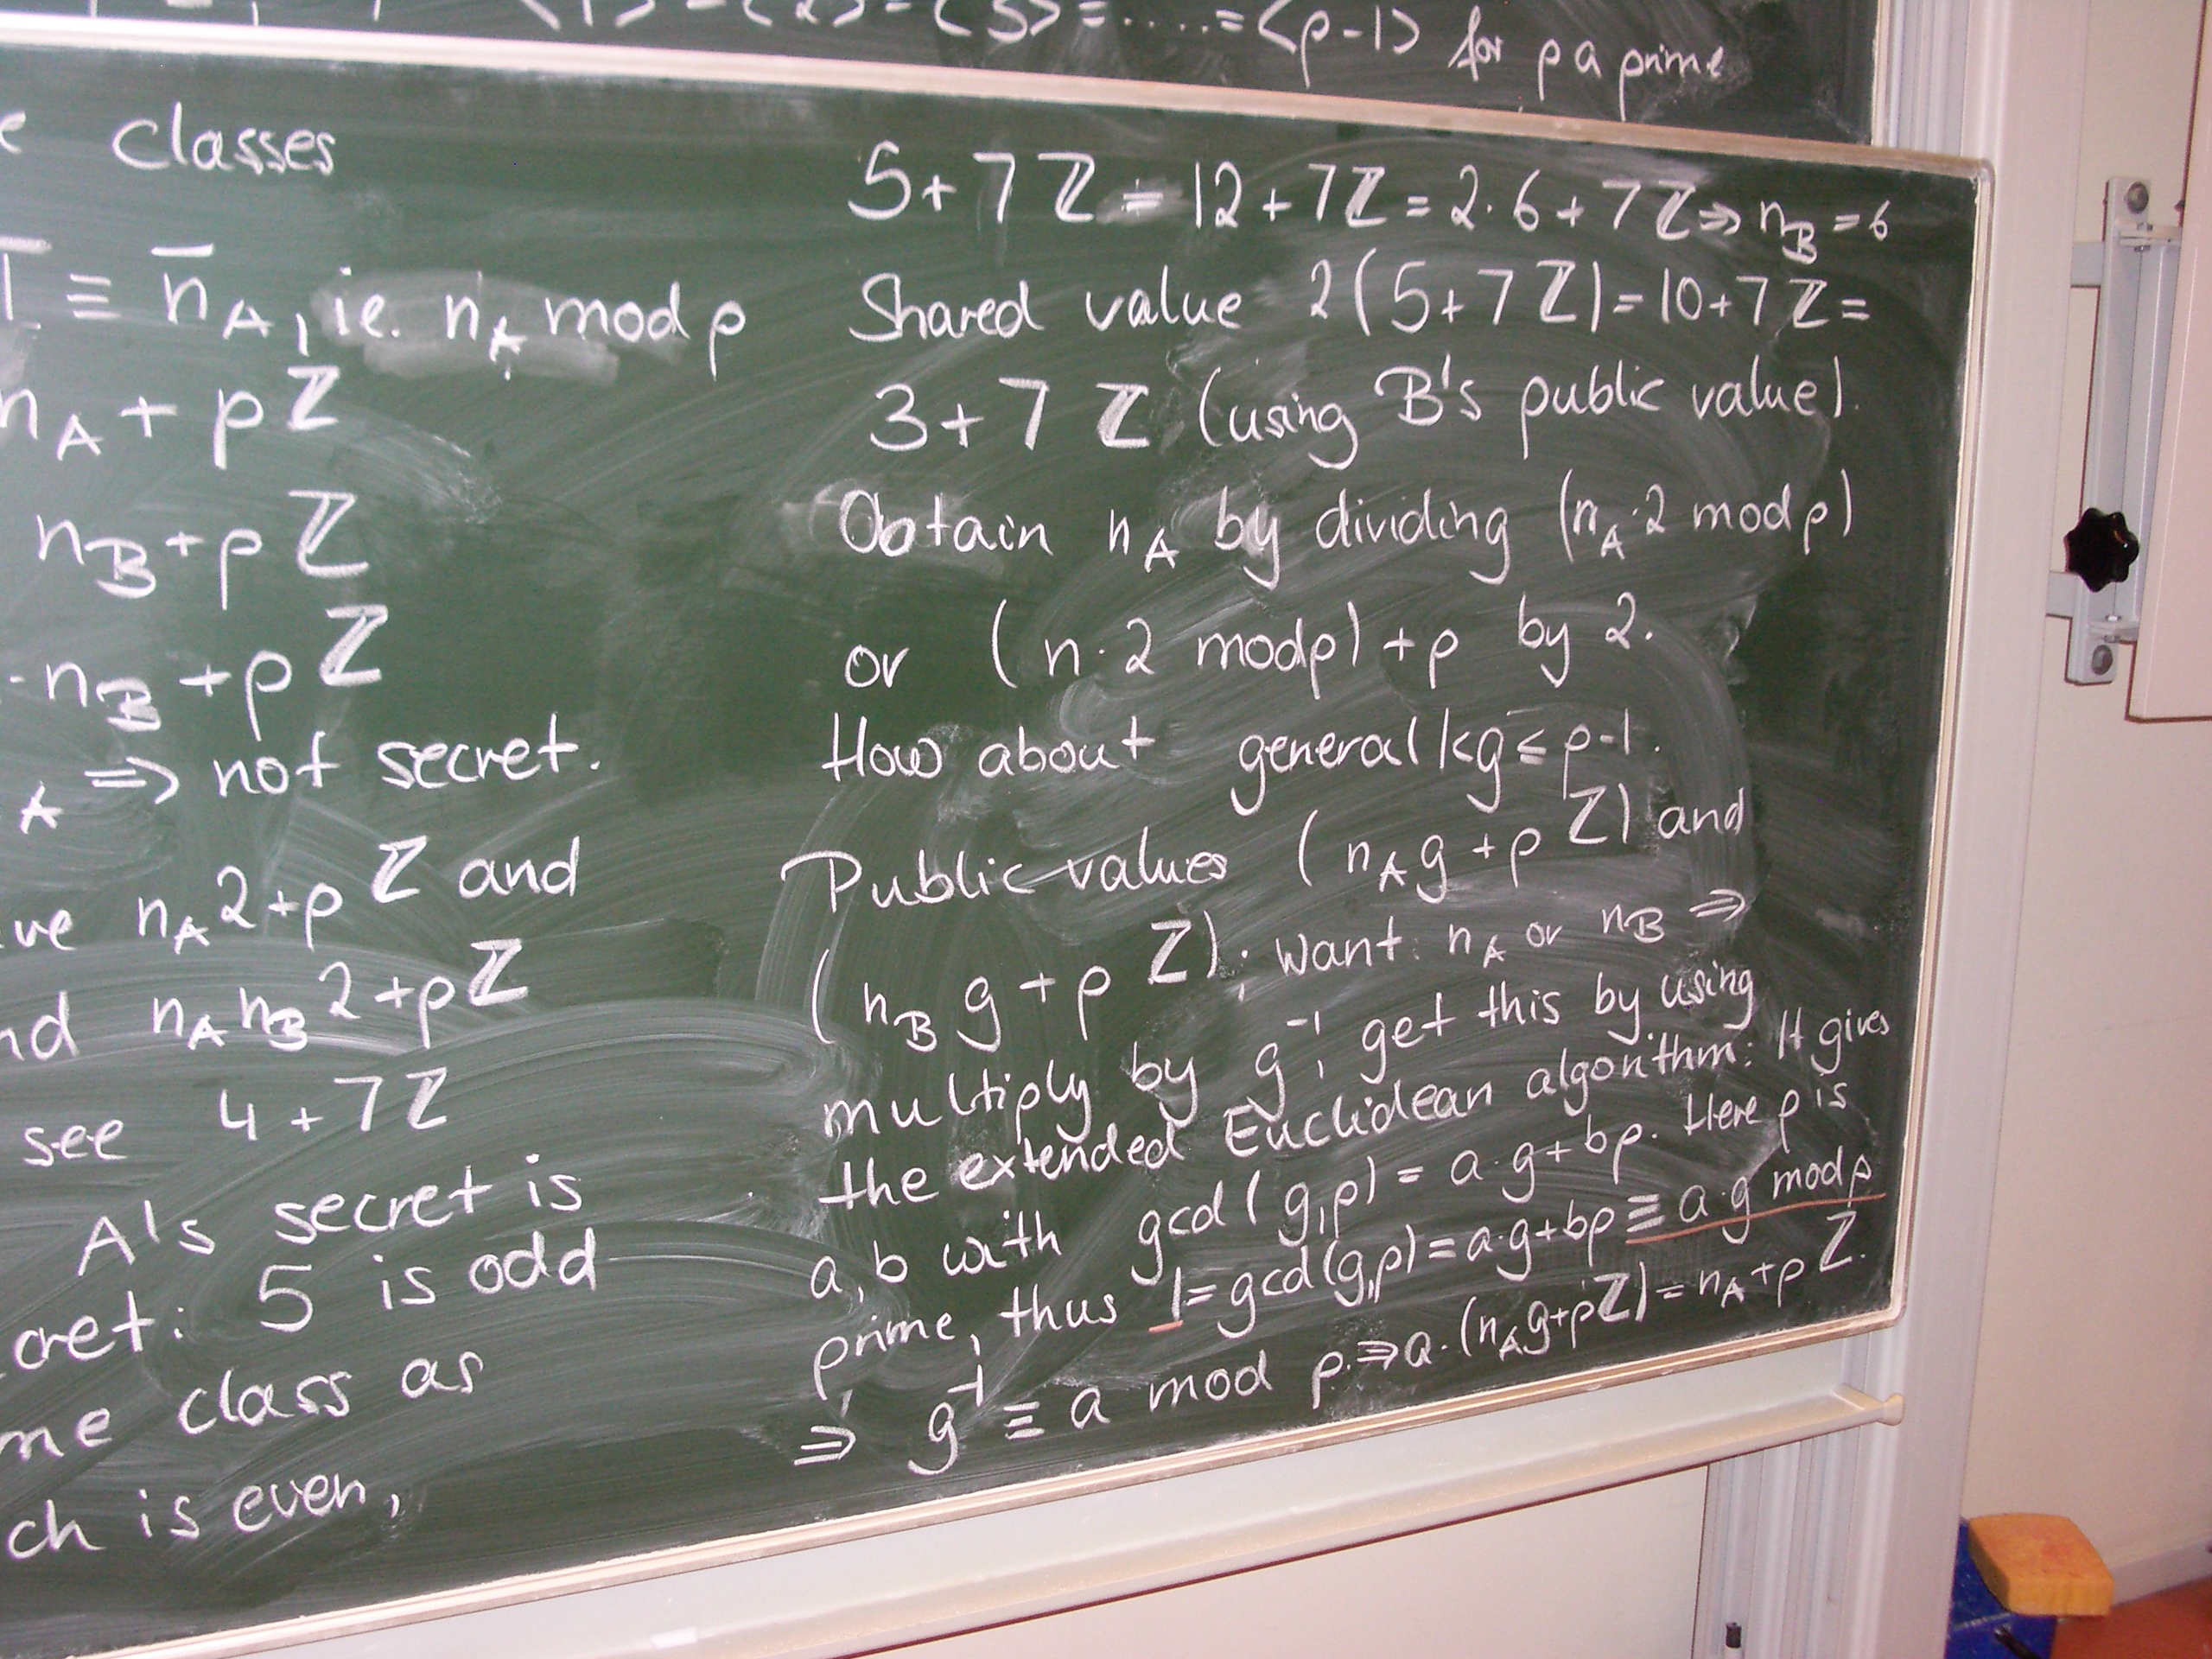 <1>=<2>=<3>=.....=<p-1> for p a prime
classes
1̄ ≡ n̄_A, ie. n_A mod p
n_A + pℤ
n_B + pℤ
·n_B + pℤ
A ⇒ not secret.
n_A 2+pℤ and
n_A n_B 2+pℤ
see 4+7ℤ
A's secret is
cret: 5 is odd
me class as
ch is even,
5+7ℤ = 12+7ℤ = 2·6+7ℤ ⇒ n_B = 6
Shared value 2(5+7ℤ) = 10+7ℤ =
3+7ℤ (using B's public value).
Obtain n_A by dividing (n_A·2 mod p)
or (n·2 mod p)+p by 2.
How about general 1<g≤p-1.
Public values (n_A g + pℤ) and
(n_B g + pℤ); want: n_A or n_B ⇒
multiply by g⁻¹, get this by using
the extended Euclidean algorithm: It gives
a, b with gcd(g,p) = a·g+bp. Here p is
prime, thus 1=gcd(g,p)=a·g+bp≡a·g mod p
⇒ g⁻¹ ≡ a mod p. ⇒ a·(n_A g+pℤ) = n_A+pℤ.